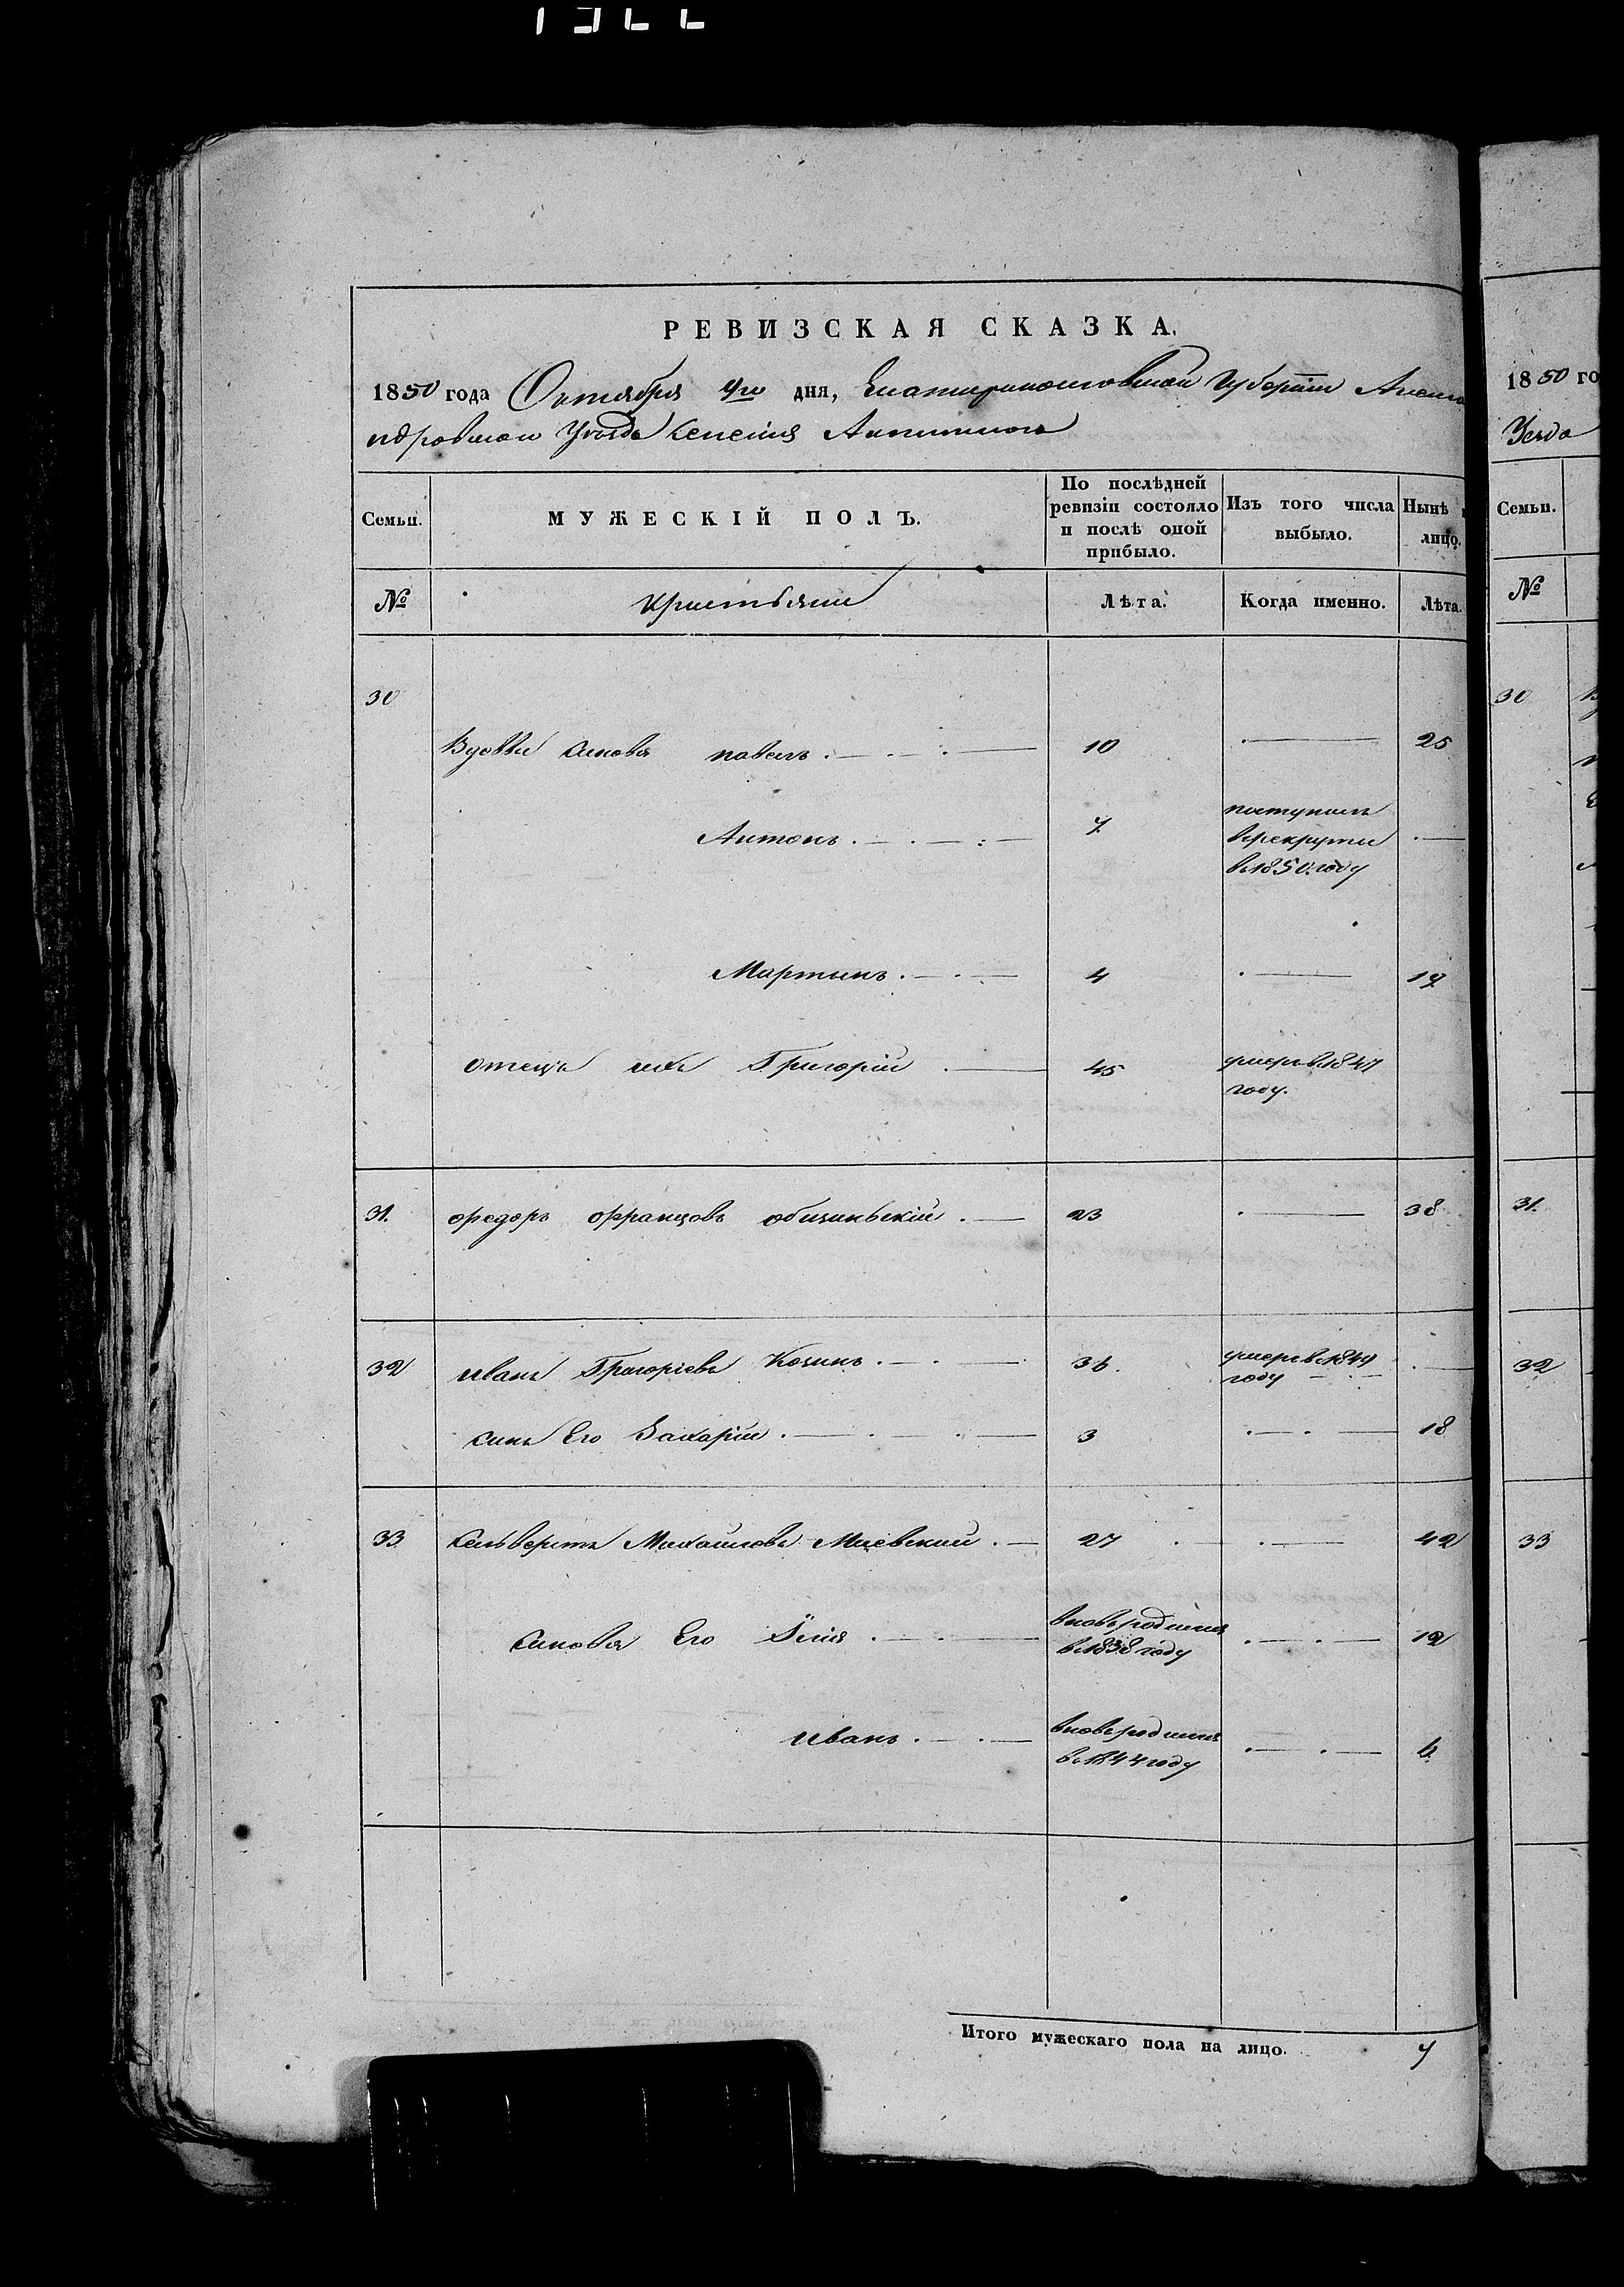 РЕВИЗСКАЯ СКАЗКА.
1850 года Октября 4го дня, Екатеринославской Губерніи Алекса
ндровскаго Уѣзда Селенія
Семьи. МУЖЕСКІЙ ПОЛЪ. По послѣдней ревизіи состояло и послѣ оной прибыло. Изъ того числа выбыло. Нынѣ лицо.
№ Крестьяне Лѣта. Когда именно. Лѣта.
30
Вдовы Синовя павелъ 10 25
Антонъ 7 поступилъ
врекруты
в 1850 году
Мартинъ 4 19
отецъ ихъ Григорій 45 умеръ в 1847
году.
31. Федоръ Францовъ 23 38
32 иванъ Григоріевъ Козинъ 36. умеръ в 1849
году
синъ Его Захарій 3 18
33 Михайловъ Маевский 27 42
Синовя Его Илія вновь родился
в 1838 году 12
иванъ вновь родился
в 1844 году 6
Итого мужескаго пола на лицо. 7
1850 го
Уезда
Семьи.
№
30
31.
32
33